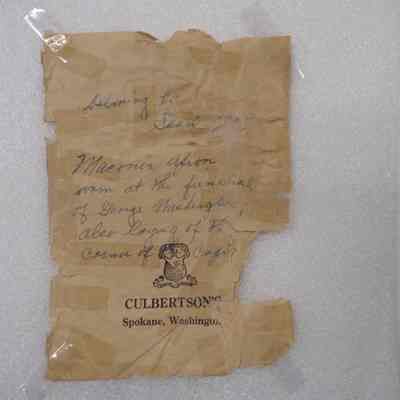 belonging to
Masonic Apron
worn at the funeral
of George Washington,
also laying of the
corner of
CULBERTSON'S
Spokane, Washington